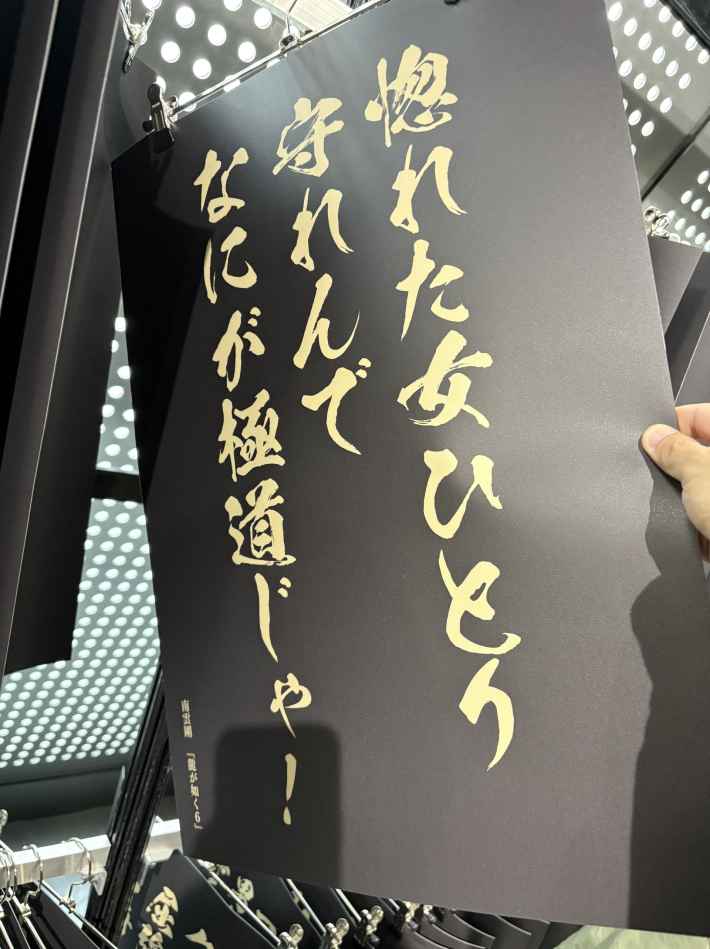 惚れた女ひとり
守れんで
なにが極道じゃ！
南雲剛 『龍が如く6』